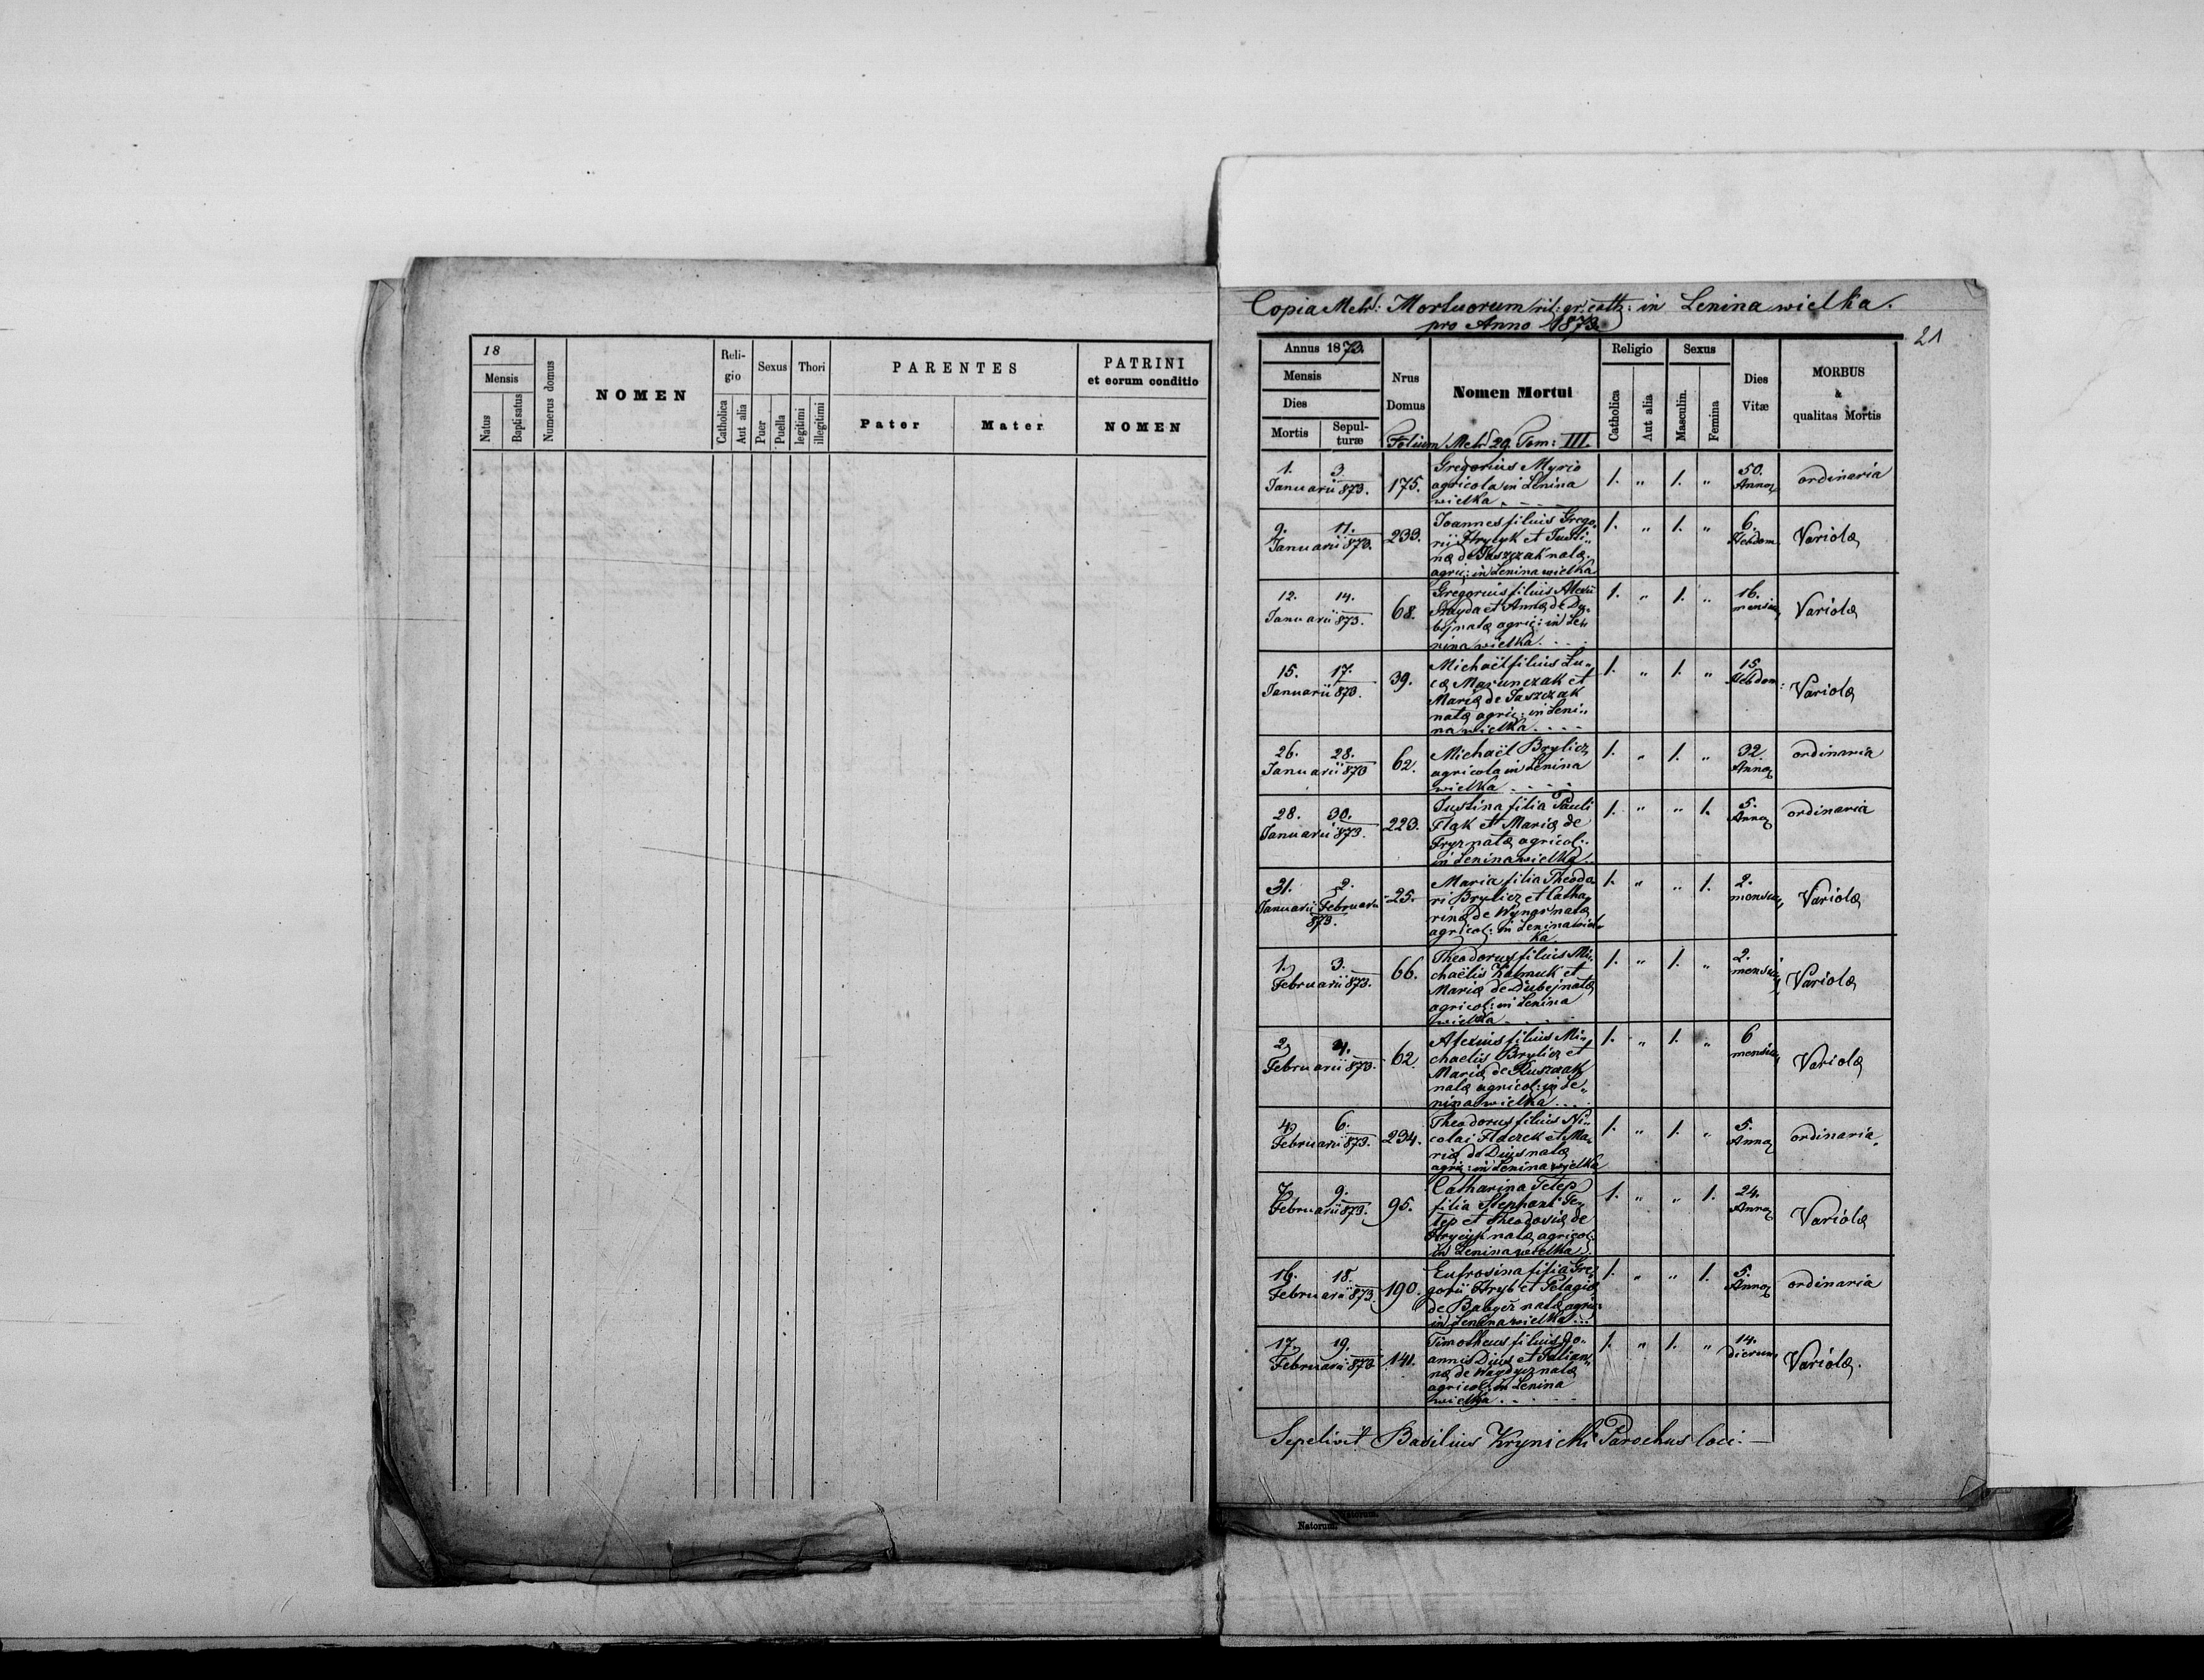 18
Mensis
Natus
Baptisatus
Numerus domus
NOMEN
Reli-
gio
Catholica
Aut alia
Sexus
Puer
Puella
Thori
legitimi
illegitimi
PARENTES
Pater
Mater
PATRINI
et eorum conditio
NOMEN
Copia Metr: Mortuorum rit: gr: cath: in Lenina wielka.
pro Anno 1873
21
Annus 1873.
Mensis
Dies
Mortis
Sepul-
turæ
Nrus
Domus
Nomen Mortui
Folium Metr 29. Tom: III.
Religio
Catholica
Aut alia
Sexus
Masculin.
Femina
Dies
Vitæ
MORBUS
&
qualitas Mortis
1. 3.
Januarii 873.
175.
Gregorius Myrio
agricola in Lenina
wielka
1. „ 1. „
50.
Annor
ordinaria
9. 11.
Januarii 873.
233.
Joannes filius Grego„
rii Hrycyk et Justi„
næ de Kuszczak natæ
agric: in Lenina wielka
1. „ 1. „
6.
Hebdom
Variolæ
12. 14.
Januarii 873.
68.
Gregorius filius Alexii
et Annæ de Du„
bej natæ agric: in Le„
nina wielka
1. „ 1. „
16.
mensium
Variolæ
15. 17.
Januarii 873.
39.
Michaël filius Lu„
cæ Marunczak et
Mariæ de Jaszczak
natæ agric: in Leni„
na wielka
1. „ 1. „
15
Hebdom:
Variolæ
26. 28.
Januarii 873
62.
Michaël Brylicz
agricola in Lenina
wielka
1. „ 1. „
32
Annor
ordinaria
28. 30.
Januarii 873.
223.
Justina filia Pauli
Flak et Mariæ de
Fryz natæ agricol:
in Lenina wielka
1. „ „ 1.
5.
Annor
ordinaria
31. 2.
Januarii Februarii
873.
25.
Maria filia Theodo„
ri Brylicz et Catha„
rinæ de natæ
agricol: in Lenina wiel„
ka
1. „ „ 1.
2.
mensium
Variolæ
1. 3.
Februarii 873.
66.
Theodorus filius Mi„
chaëlis Kałmuk et
Mariæ de Dubej natæ
agricol: in Lenina
wielka
1. „ 1. „
2.
mensium
Variolæ
2. 4.
Februarii 873.
62.
Alexius filius Mi„
chaëlis Brylicz et
Mariæ de Kuszczak
natæ agricol: in Le„
nina wielka
1. „ 1. „
6
mensium
Variolæ
4. 6.
Februarii 873.
234.
Theodorus filius Ni„
colai Flaczek et Ma„
riæ de Dius natæ
agric: in Lenina wielka
1. „ 1. „
5.
Annor
ordinaria.
7. 9.
Februarii 873.
95.
Catharina Telep
filia Stephani Te„
lep et Theodosiæ de
Hrycyk natæ agricol:
in Lenina wielka
1. „ „ 1.
24.
Annor
Variolæ
16. 18.
Februarii 873.
190.
Eufrosina filia Gre„
gorii Hryb et Pelagiæ
de natæ agric:
in Lenina wielka
1. „ „ 1.
5.
Annor
ordinaria
17. 19.
Februarii 873
141.
Timotheus filius Jo„
annis Dius et Julian„
næ de natæ
agricol: in Lenina
wielka
1. „ 1. „
14.
dierum
Variolæ.
Sepelivit Basilius Krynicki Parochus loci.
Natorum.
Natorum.